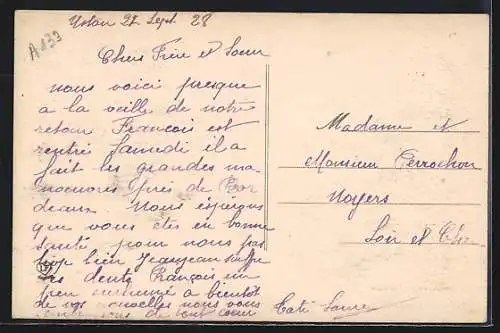 27 Sept. 28
A139
Chers Frère et Soeur
nous voici presque
a la veille de notre
retour François est
rentré Samedi il a
fait les grandes ma-
noeuvres près de Bor
deaux. Nous espérons
que vous êtes en bonne
santé pour nous pas
trop bien Jeanjean
des dents François un
peu enrhumé a bientôt
de vos nouvelles nous vous
de tout coeur
Madame et
Monsieur Perrochon
Noyers
Loir et Cher